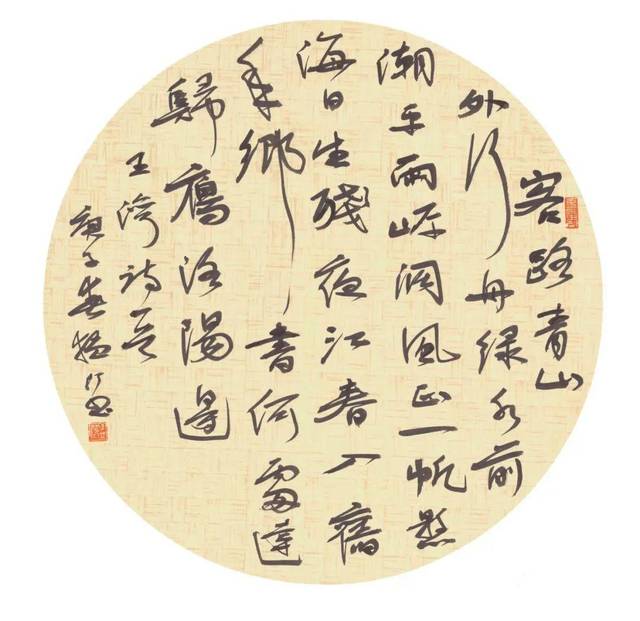 客路青山
外行舟绿水前
潮平兩岸闊風正一帆懸
海日生殘夜江春入舊
年鄉書何處達
歸鴈洛陽邊
王湾诗
庚子春书